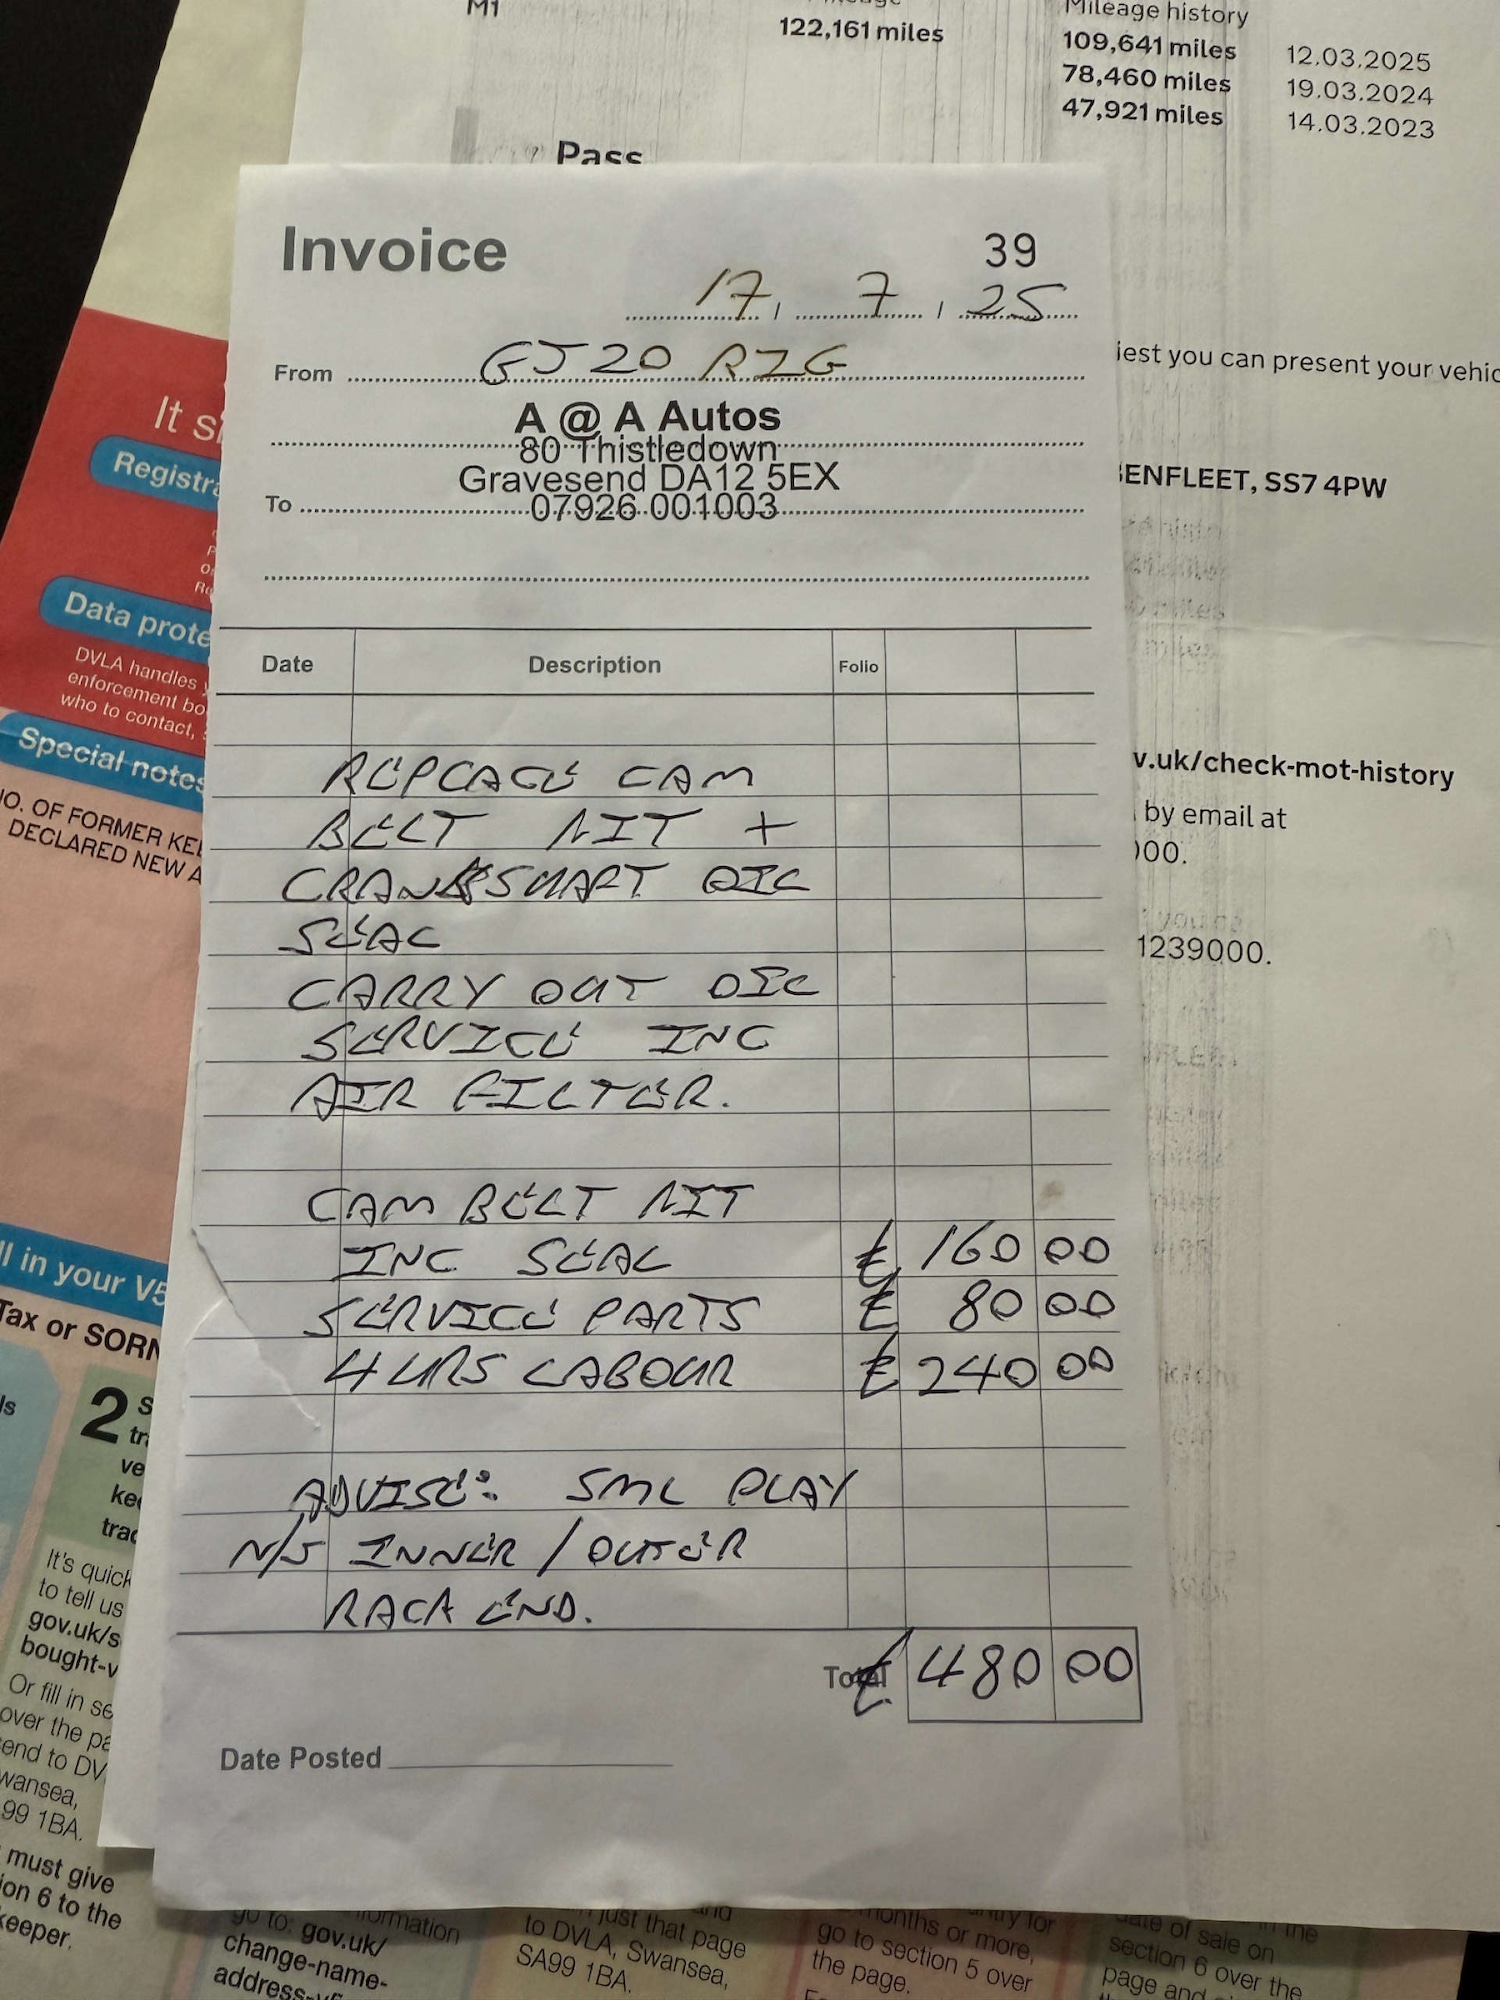 M1
122,161 miles
Mileage history
109,641 miles 12.03.2025
78,460 miles 19.03.2024
47,921 miles 14.03.2023
Pass
Invoice 39
17, 7, 25
From GJ20 RZG
A @ A Autos
80 Thistledown
Gravesend DA12 5EX
To 07926 001003
Date Description Folio
REPLACE CAM
BELT KIT +
CRANKSHAFT OIL
SEAL
CARRY OUT OIL
SERVICE INC
AIR FILTER.
CAM BELT KIT
INC SEAL £ 160 00
SERVICE PARTS £ 80 00
4 HRS LABOUR £ 240 00
ADVISE: SML PLAY
N/S INNER / OUTER
RACK END.
Total £ 480 00
Date Posted
iest you can present your vehic
ENFLEET, SS7 4PW
v.uk/check-mot-history
by email at
000.
1239000.
It s
Registra
Data prote
DVLA handles
enforcement bo
who to contact,
Special notes
NO. OF FORMER KE
DECLARED NEW A
ll in your V5
Tax or SORN
2
It's quick
to tell us
gov.uk/s
bought-v
Or fill in se
over the pa
end to DV
wansea,
99 1BA.
must give
ion 6 to the
keeper.
go to: gov.uk/
change-name-
just that page
to DVLA, Swansea,
SA99 1BA.
months or more,
go to section 5 over
the page.
date of sale on
section 6 over the